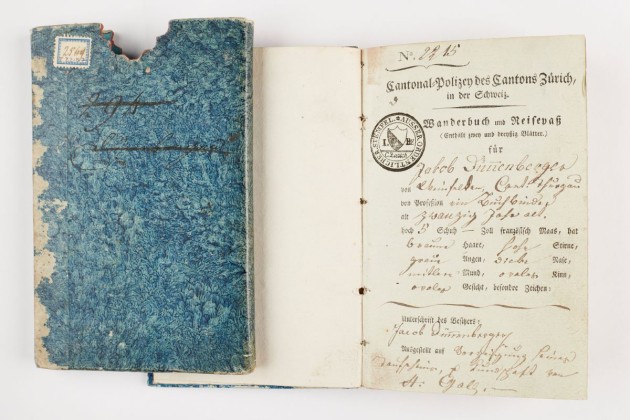 2544
No. 2815
Cantonal-Polizey des Cantons Zürich,
in der Schweiz.
Wanderbuch und Reisepaß
(Enthält zwey und dreyßig Blätter.)
für
Jakob Dünnenberger
von Weinfelden, Cant. Thurgau
von Profession ein Buchbinder
alt zwanzig Jahr alt.
hoch 5 Schuh — Zoll französisch Maas, hat
braune Haare, hohe Stirne,
graue Augen, dicke Nase,
mittlere Mund, ovales Kinn,
ovales Gesicht, besondre Zeichen:
Unterschrift des Besitzers:
Jacob Dünnenberger
Ausgestellt auf
Taufschein, Kundschaft von
St. Gallen
AUSSERORDENTLICHER STEMPEL
1. Bz